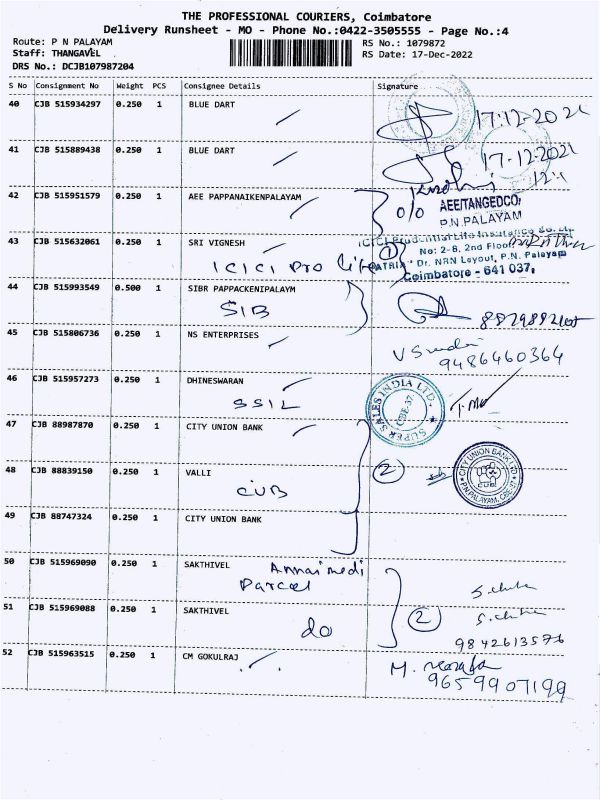 THE PROFESSIONAL COURIERS, Coimbatore
Delivery Runsheet - MO - Phone No.:0422-3505555 - Page No.:4
Route: P N PALAYAM RS No.: 1079872
Staff: THANGAVEL RS Date: 17-Dec-2022
DRS No.: DCJB107987204
S No Consignment No Weight PCS Consignee Details Signature
40 CJB 515934297 0.250 1 BLUE DART 17-12-2021
41 CJB 515889438 0.250 1 BLUE DART 17-12-2021
42 CJB 515951579 0.250 1 AEE PAPPANAIKENPALAYAM O/O AEE/TANGEDCO,
P.N.PALAYAM
43 CJB 515632061 0.250 1 SRI VIGNESH 1
ICICI Prudential Life Insurance Co. Ltd
No: 2-8, 2nd Floor,
ICICI Pro Life Dr. NRN Leyout, P.N. Palayam
Coimbatore - 641 037.
44 CJB 515993549 0.500 1 SIBR PAPPACKENIPALAYM
SIB
45 CJB 515806736 0.250 1 NS ENTERPRISES
9486460364
46 CJB 515957273 0.250 1 DHINESWARAN
SSIL SUPER SALES INDIA LTD. CBE-37
47 CJB 88987870 0.250 1 CITY UNION BANK
48 CJB 88839150 0.250 1 VALLI 2 CITY UNION BANK LTD
CUB C.U.B. P.N.PALAYAM, CBE-37
49 CJB 88747324 0.250 1 CITY UNION BANK
50 CJB 515969090 0.250 1 SAKTHIVEL Annai medi
Parcel
51 CJB 515969088 0.250 1 SAKTHIVEL 2
do 9842613576
52 CJB 515963515 0.250 1 CM GOKULRAJ M.
9659907199